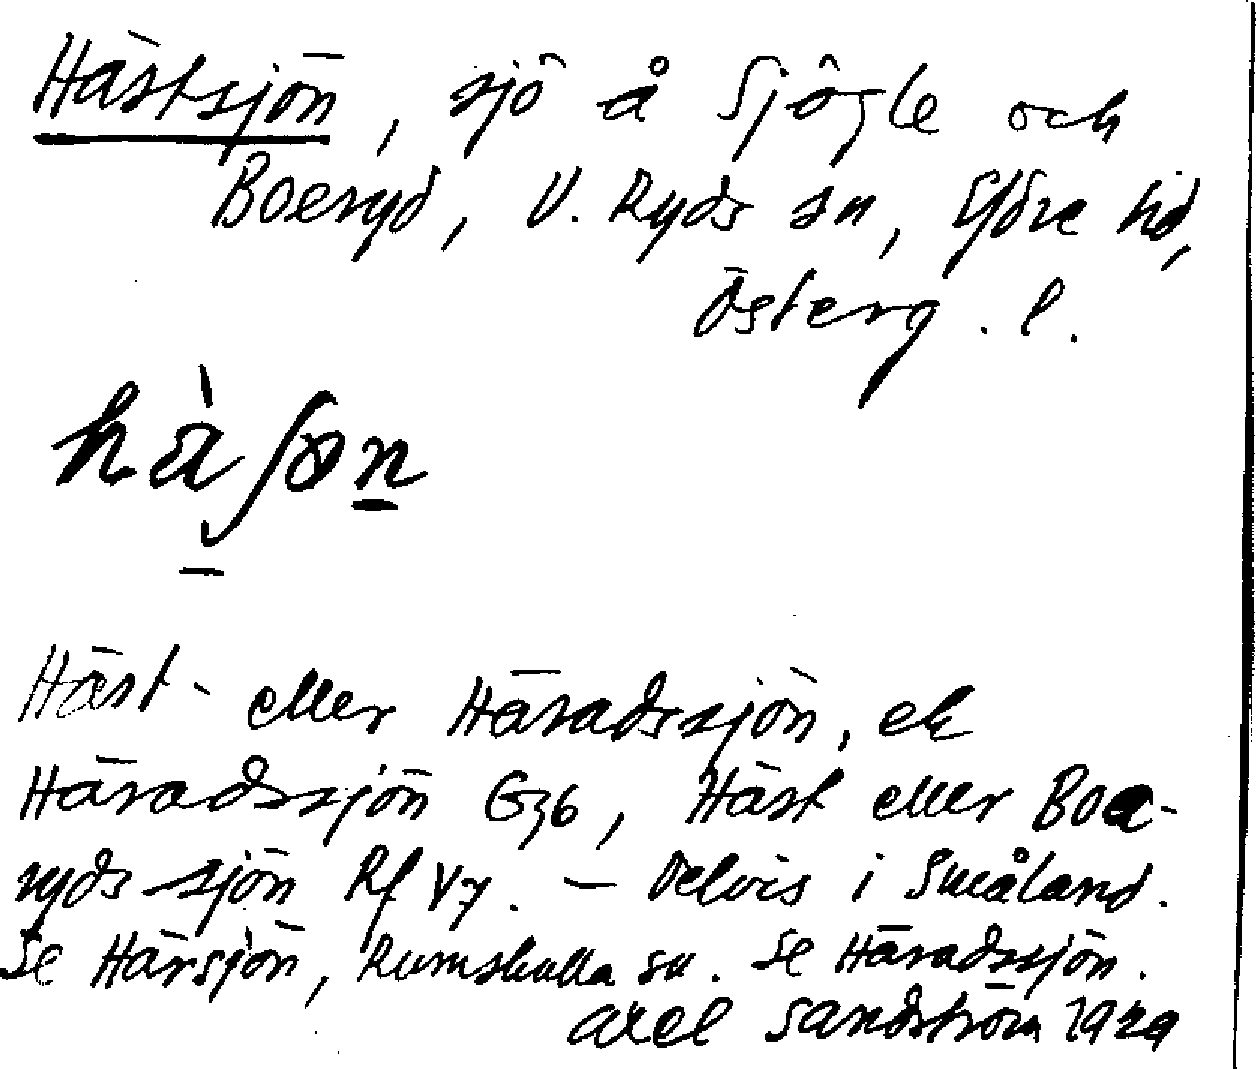 Hästsjön, sjö å Sjögle och
Boeryd, V. Ryds sn, Ydre hd,
Österg. l.
Häst- eller Häradssjön, ek
Häradssjön G36, Häst eller Boe-
ryds sjön Rf V7. – Delvis i Småland.
Se Härsjön, Rumskulla sn. Se Häradssjön.
Axel Sandström 1929